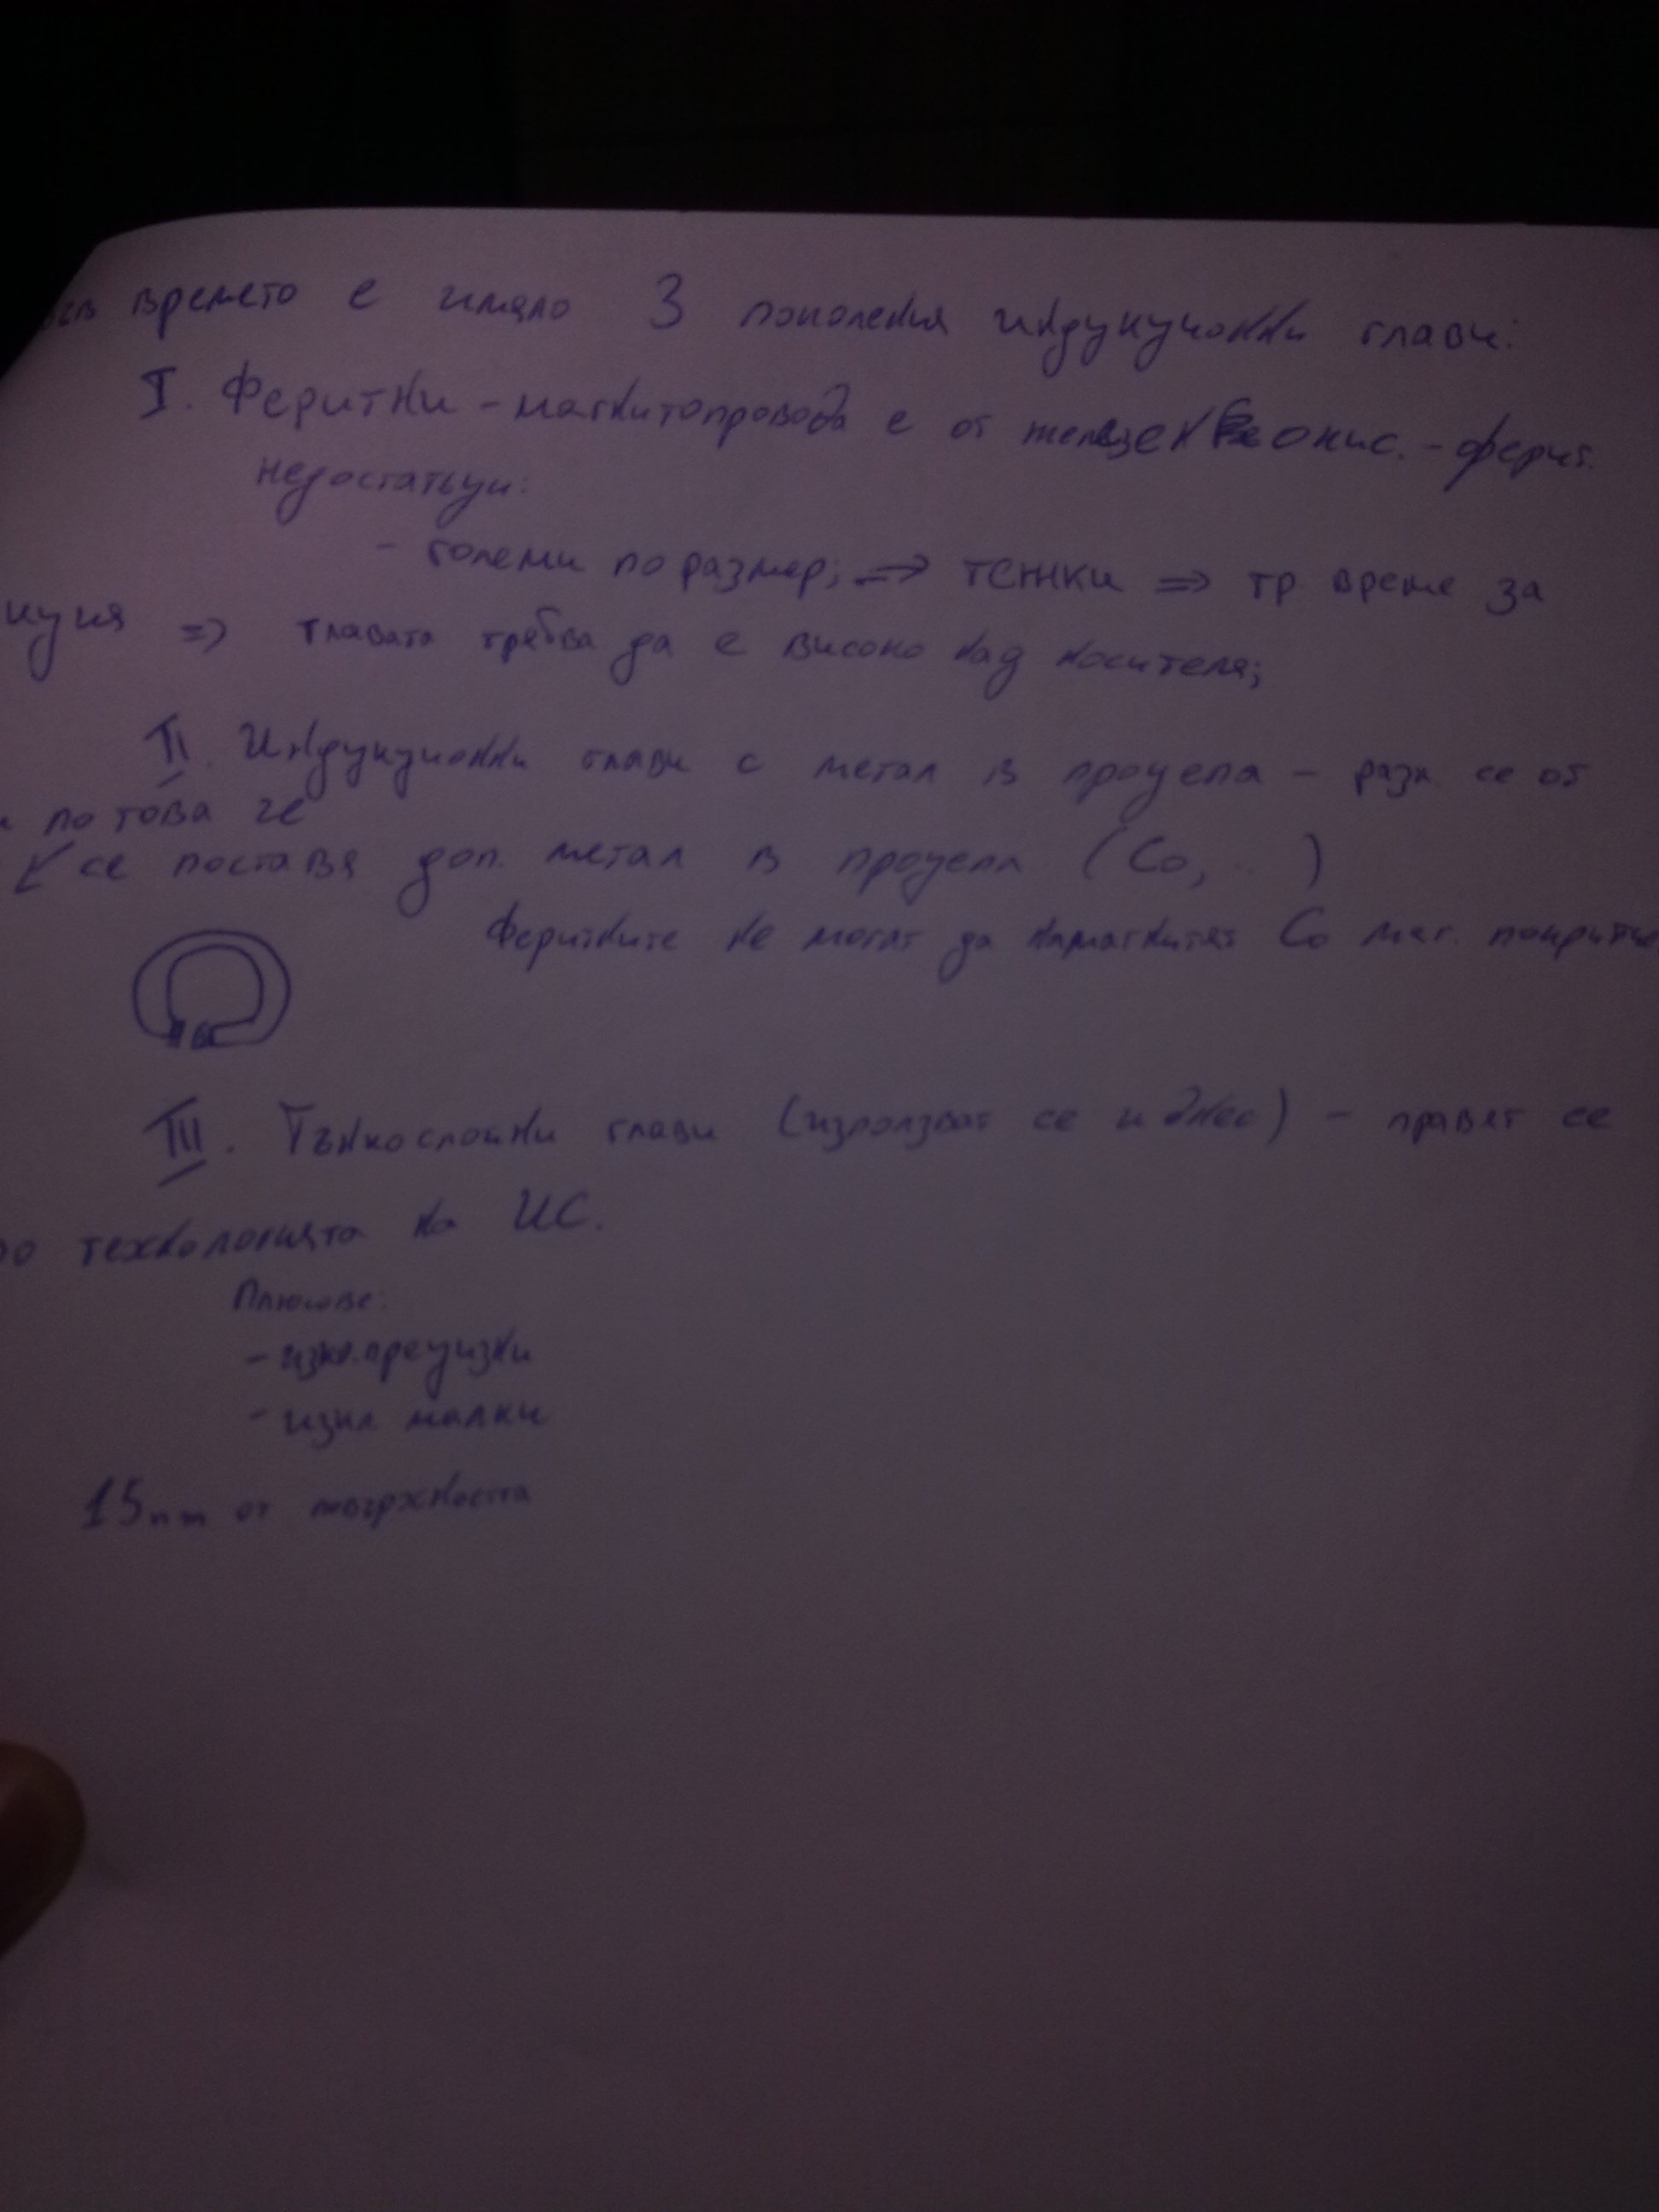 във времето е имало 3 поколения индукционни глави:
I. Феритни - магнитопровода е от железен окис. - ферит.
недостатъци:
- големи по размер; => тежки => тр време за
=> главата трябва да е високо над носителя;
II. Индукционни глави с метал в процепа - разл. се от
по това че
се поставя доп. метал в процепа (Co, ..)
Феритните не могат да намагнитят Co маг. покритие
III. Тънкослойни глави (използват се и днес) - правят се
по технологията на ИС.
Плюсове:
- изкл. прецизни
- изкл малки
15nm от повърхността